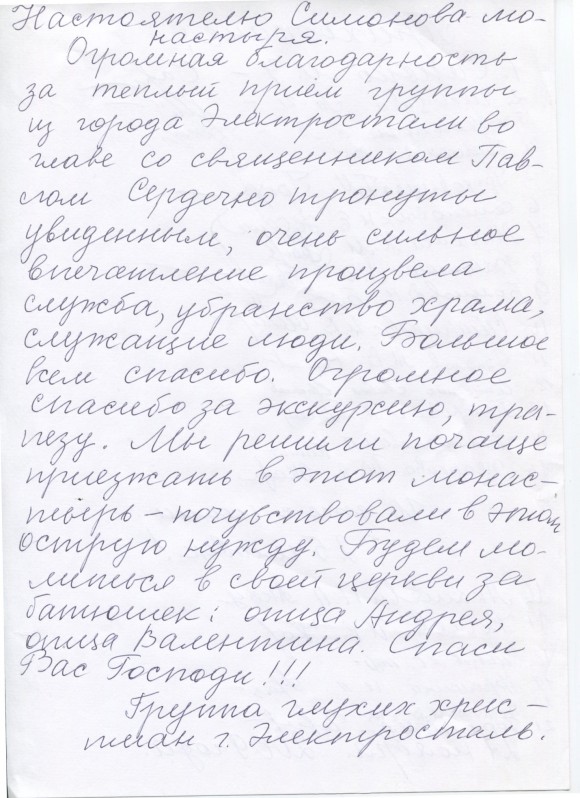 Настоятелю Симонова мо-
настыря.
Огромная благодарность
за теплый прием группы
из города Электростали во
главе со священником Пав-
лом Сердечно тронуты
увиденным, очень сильное
впечатление произвела
служба, убранство храма,
служащие люди. Большое
всем спасибо. Огромное
спасибо за экскурсию, тра-
пезу. Мы решили почаще
приезжать в этот монас-
тырь – почувствовали в этом
острую нужду. Будем мо-
литься в своей церкви за
батюшек: отца Андрея,
отца Валентина. Спаси
Вас Господи!!!
Группа глухих хрис-
тиан г. Электросталь.